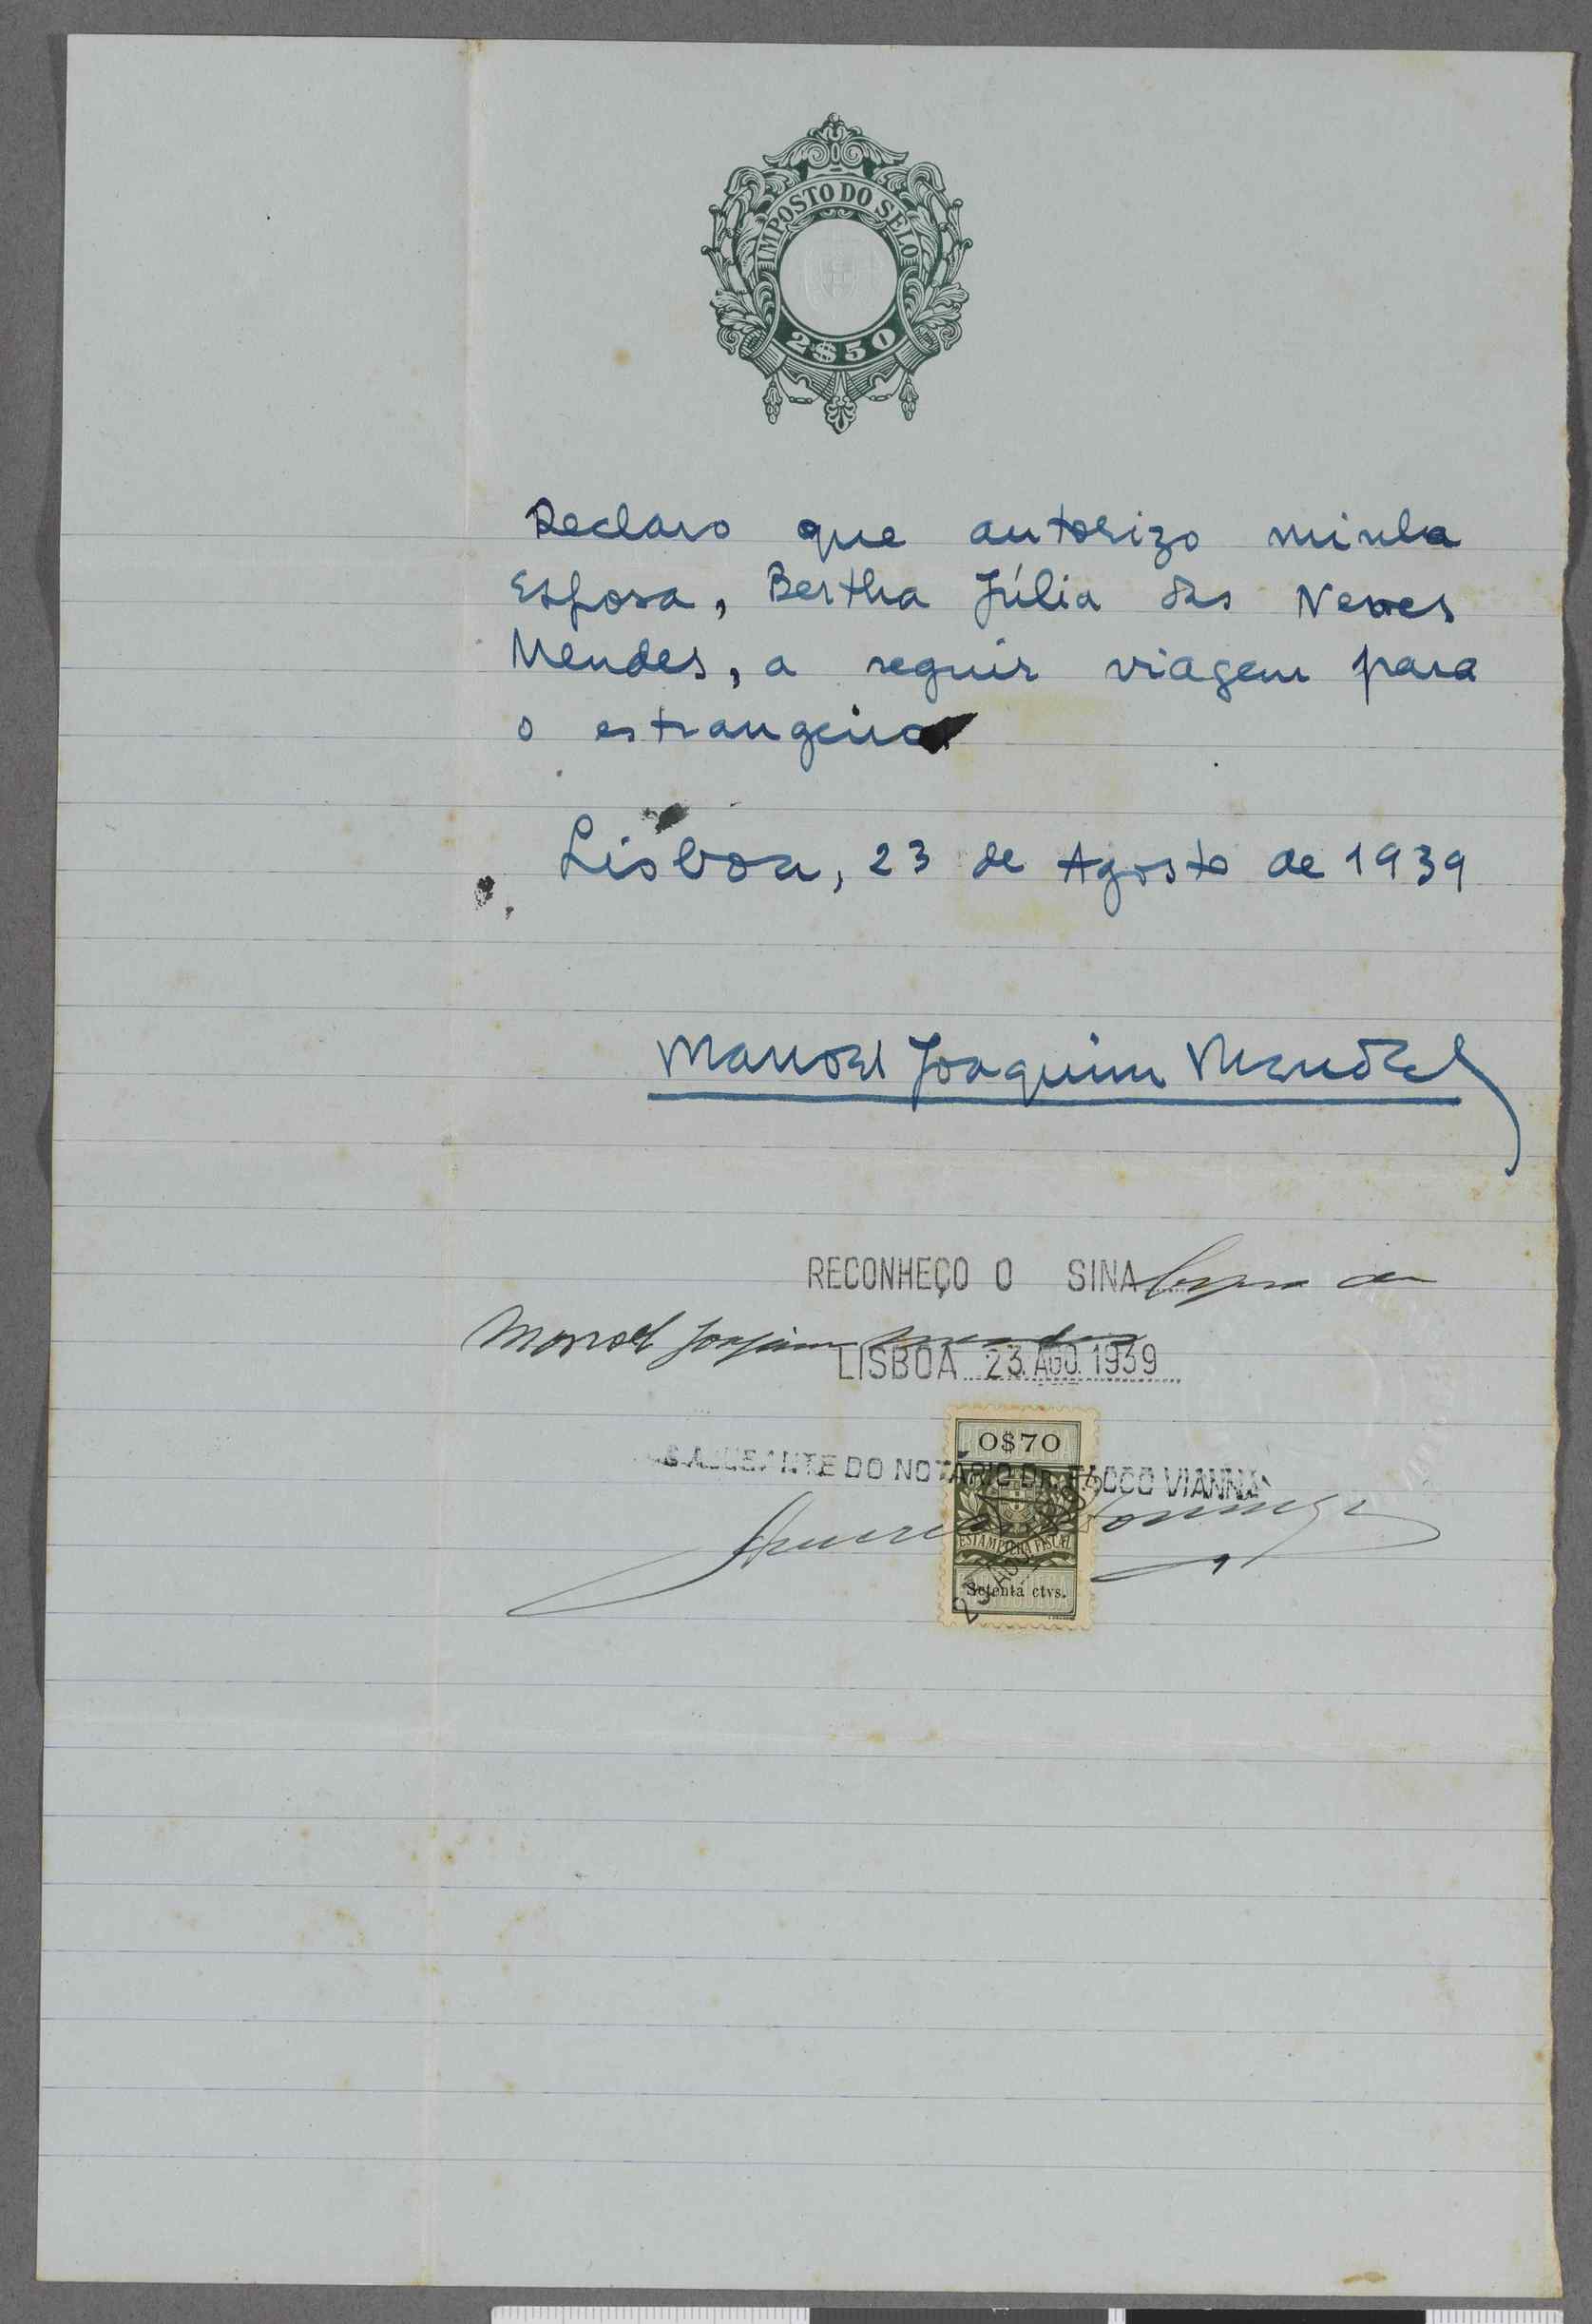 IMPOSTO DO SELO
2$50
Declaro que autorizo minha
Esposa, Bertha Júlia das Neves
Mendes, a seguir viagem para
o estrangeiro
Lisboa, 23 de Agosto de 1939
Manoel Joaquim Mendes
RECONHEÇO O SINAL supra de
Manoel Joaquim Mendes
LISBOA 23. AGO. 1939
0$70
AJUDANTE DO NOTÁRIO Dr. TAVARES VIANNA
ESTAMPILHA FISCAL
Setenta ctvs.